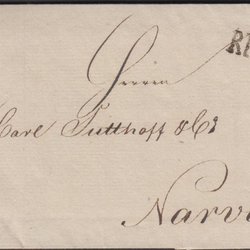 RE
Herren
Carl Sutthoff & Co
Narv